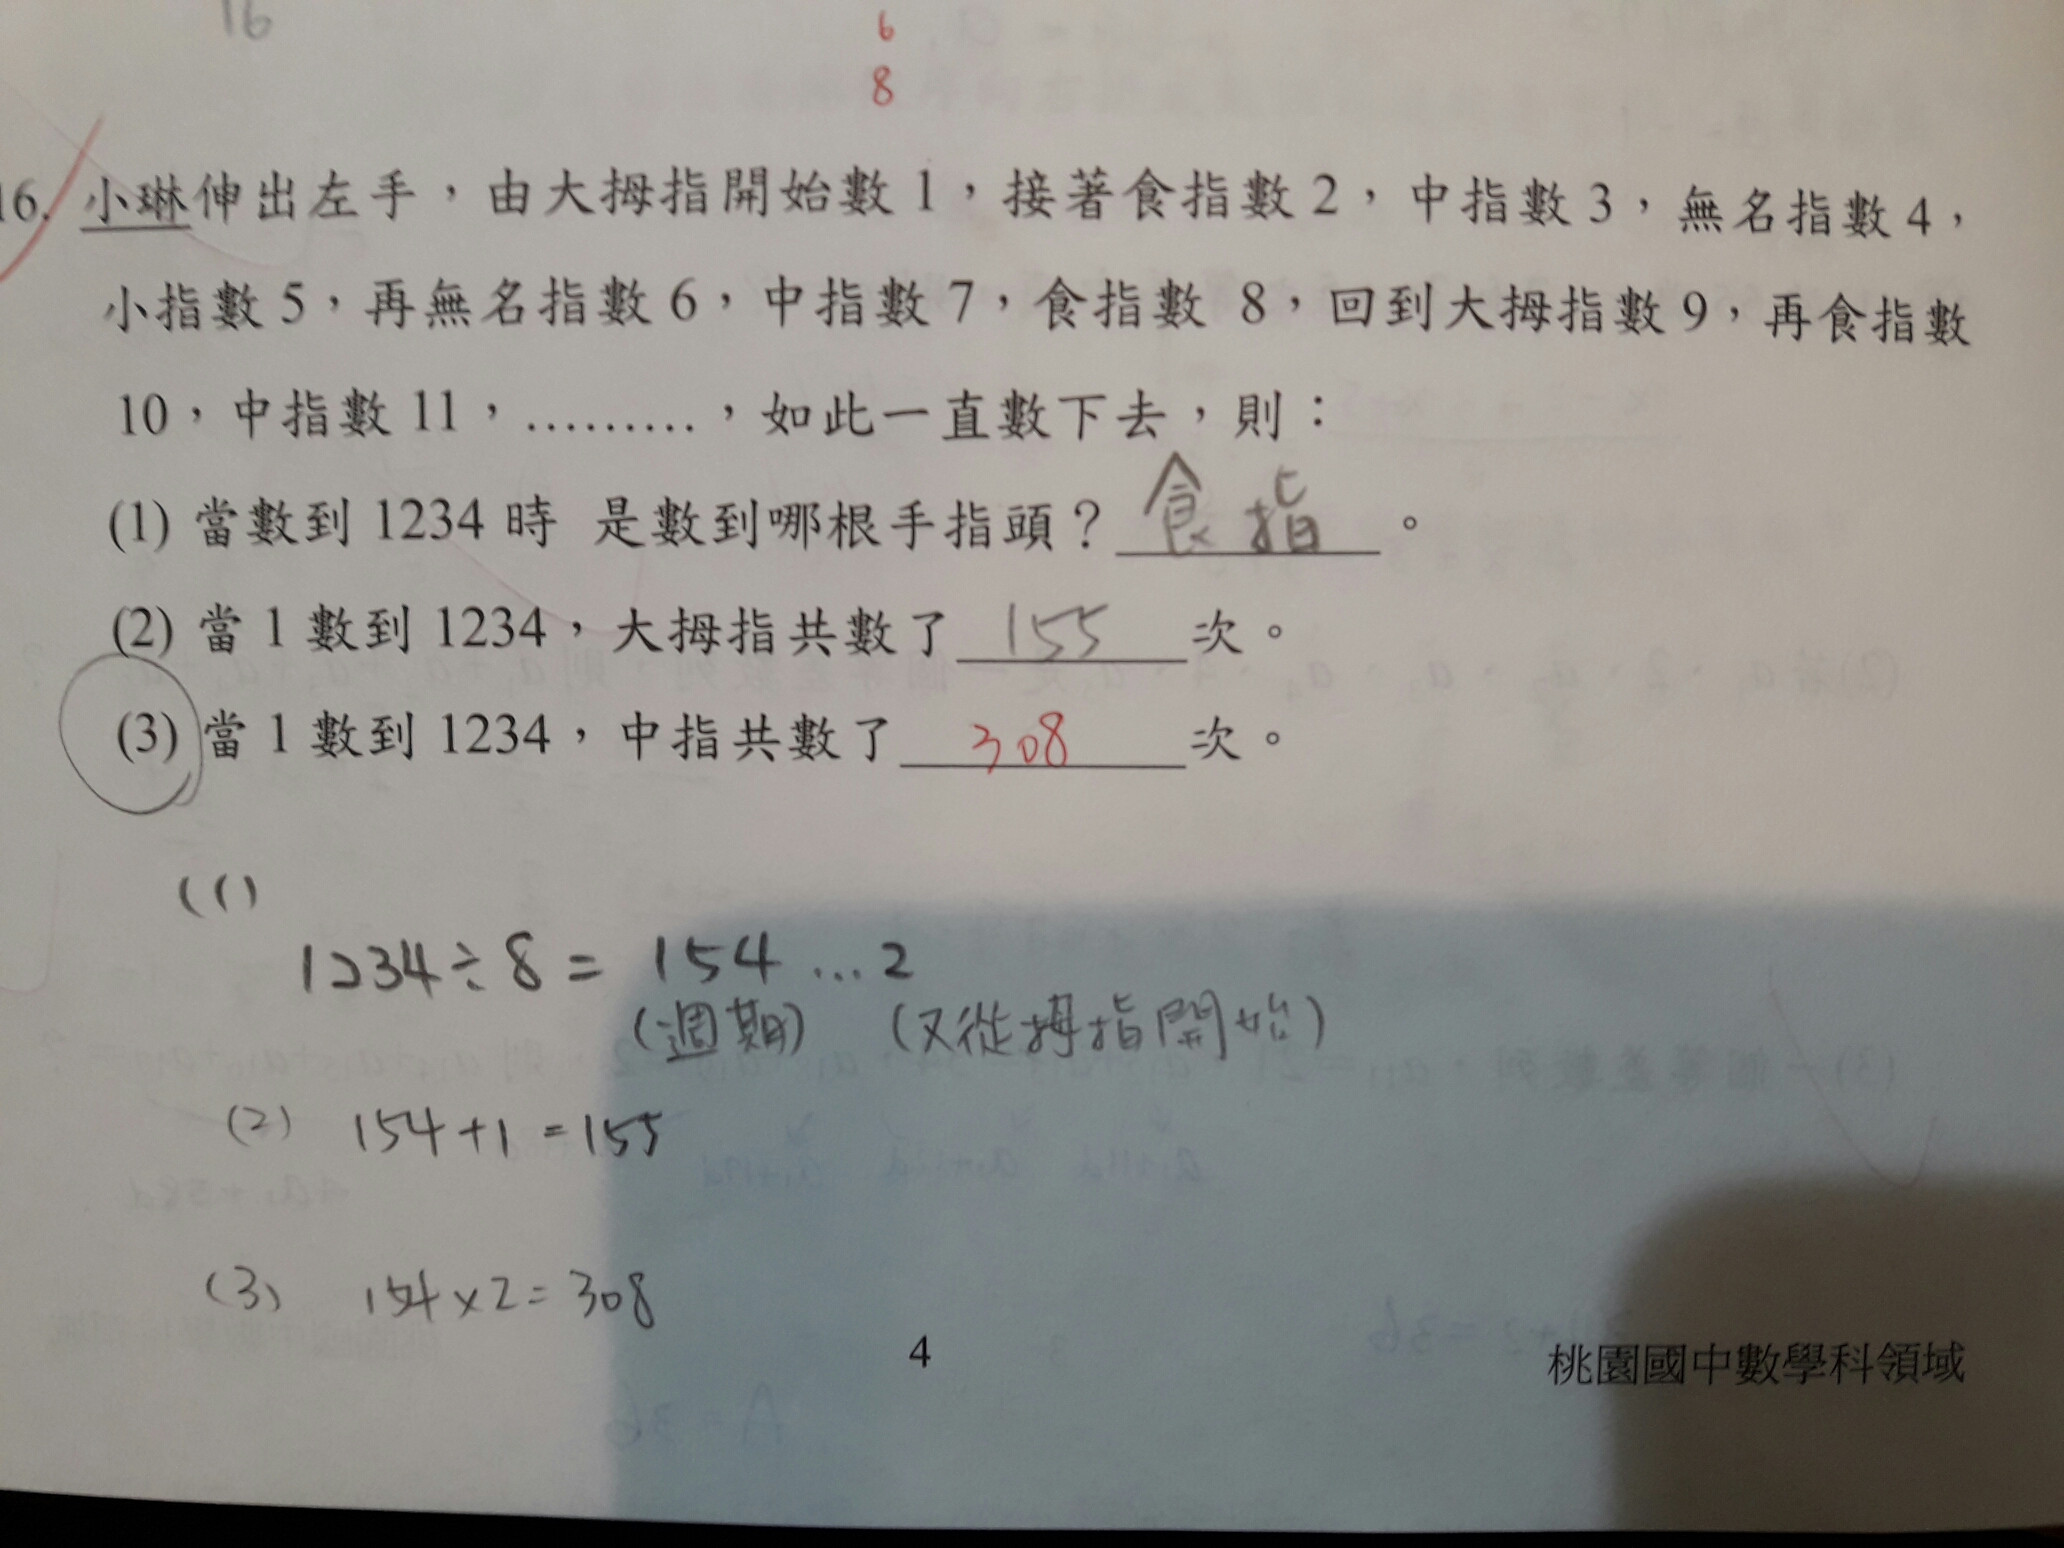 16
6
8
16. 小琳伸出左手，由大拇指開始數 1，接著食指數 2，中指數 3，無名指數 4，
小指數 5，再無名指數 6，中指數 7，食指數 8，回到大拇指數 9，再食指數
10，中指數 11，………，如此一直數下去，則：
(1) 當數到 1234 時 是數到哪根手指頭？食指。
(2) 當 1 數到 1234，大拇指共數了 155 次。
(3) 當 1 數到 1234，中指共數了 308 次。
(1)
1234÷8 = 154 ...2
(週期) (又從拇指開始)
(2) 154+1 =155
(3) 154×2=308
4
桃園國中數學科領域